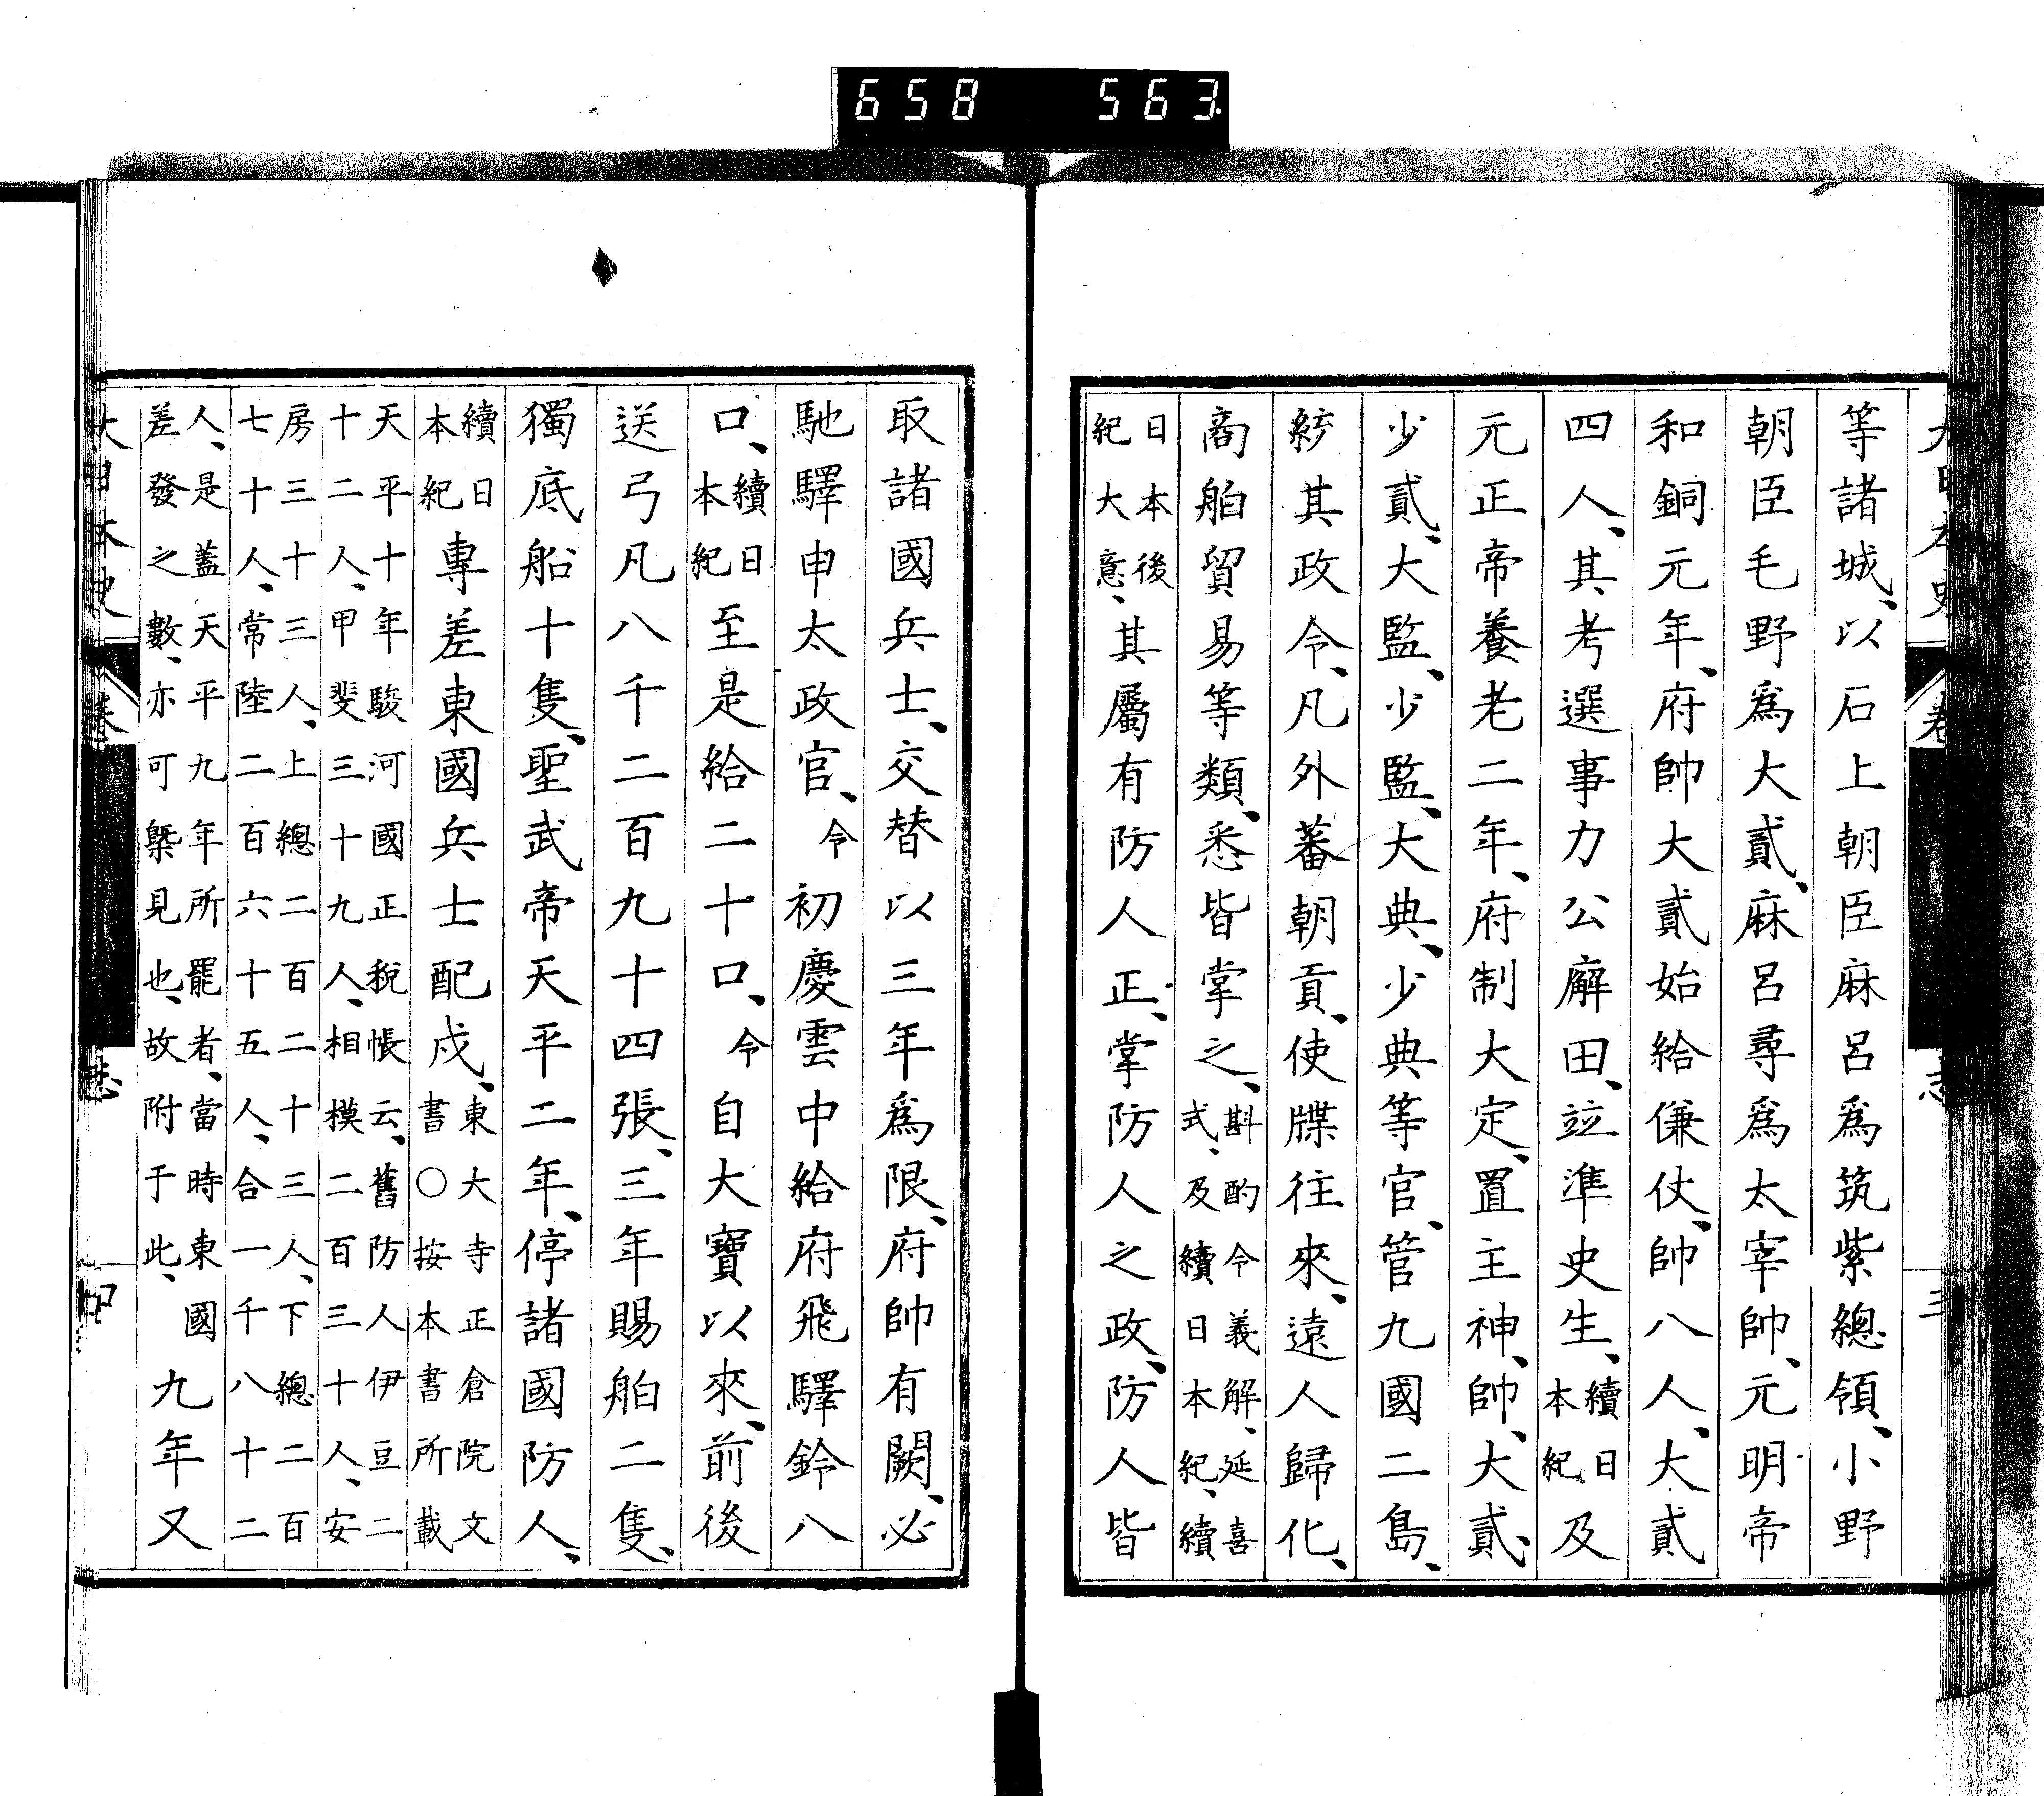 658 563
等諸城、以石上朝臣麻呂爲筑紫總領、小野
朝臣毛野爲大貳、麻呂尋爲太宰帥、元明帝
和銅元年、府帥大貳始給傔仗、帥八人、大貳
四人、其考選事力公廨田、竝準史生、續日本紀及
元正帝養老二年、府制大定、置主神、帥、大貳、
少貳、大監、少監、大典、少典等官、管九國二島、
統其政令、凡外蕃朝貢、使牒往來、遠人歸化、
商舶貿易等類、悉皆掌之、斟酌令義解、延喜式、及續日本紀、續
日本後紀大意、其屬有防人正、掌防人之政、防人皆
取諸國兵士、交替以三年爲限、府帥有闕、必
馳驛申太政官、令初慶雲中給府飛驛鈴八
口、續日本紀至是給二十口、令自大寶以來、前後
送弓凡八千二百九十四張、三年賜舶二隻、
獨底船十隻、聖武帝天平二年、停諸國防人、
續日本紀專差東國兵士配戍、東大寺正倉院文書○按本書所載
天平十年駿河國正稅帳云、舊防人伊豆二十二人、甲斐三十九人、相模二百三十人、安
房三十三人、上總二百二十三人、下總二百七十人、常陸二百六十五人、合一千八十二
人、是蓋天平九年所罷者、當時東國差發之數、亦可槩見也、故附于此、九年又